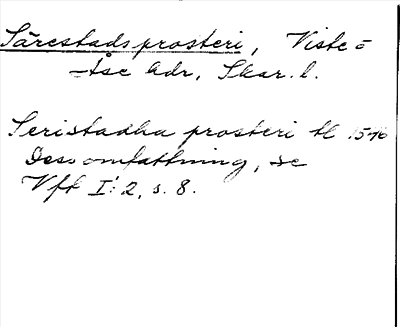 Särestads prosteri, Viste o
Åse hdr, Skar. l.
Seristadha prosteri tl 1546
Dess omfattning, se
Vft I:2, s. 8.